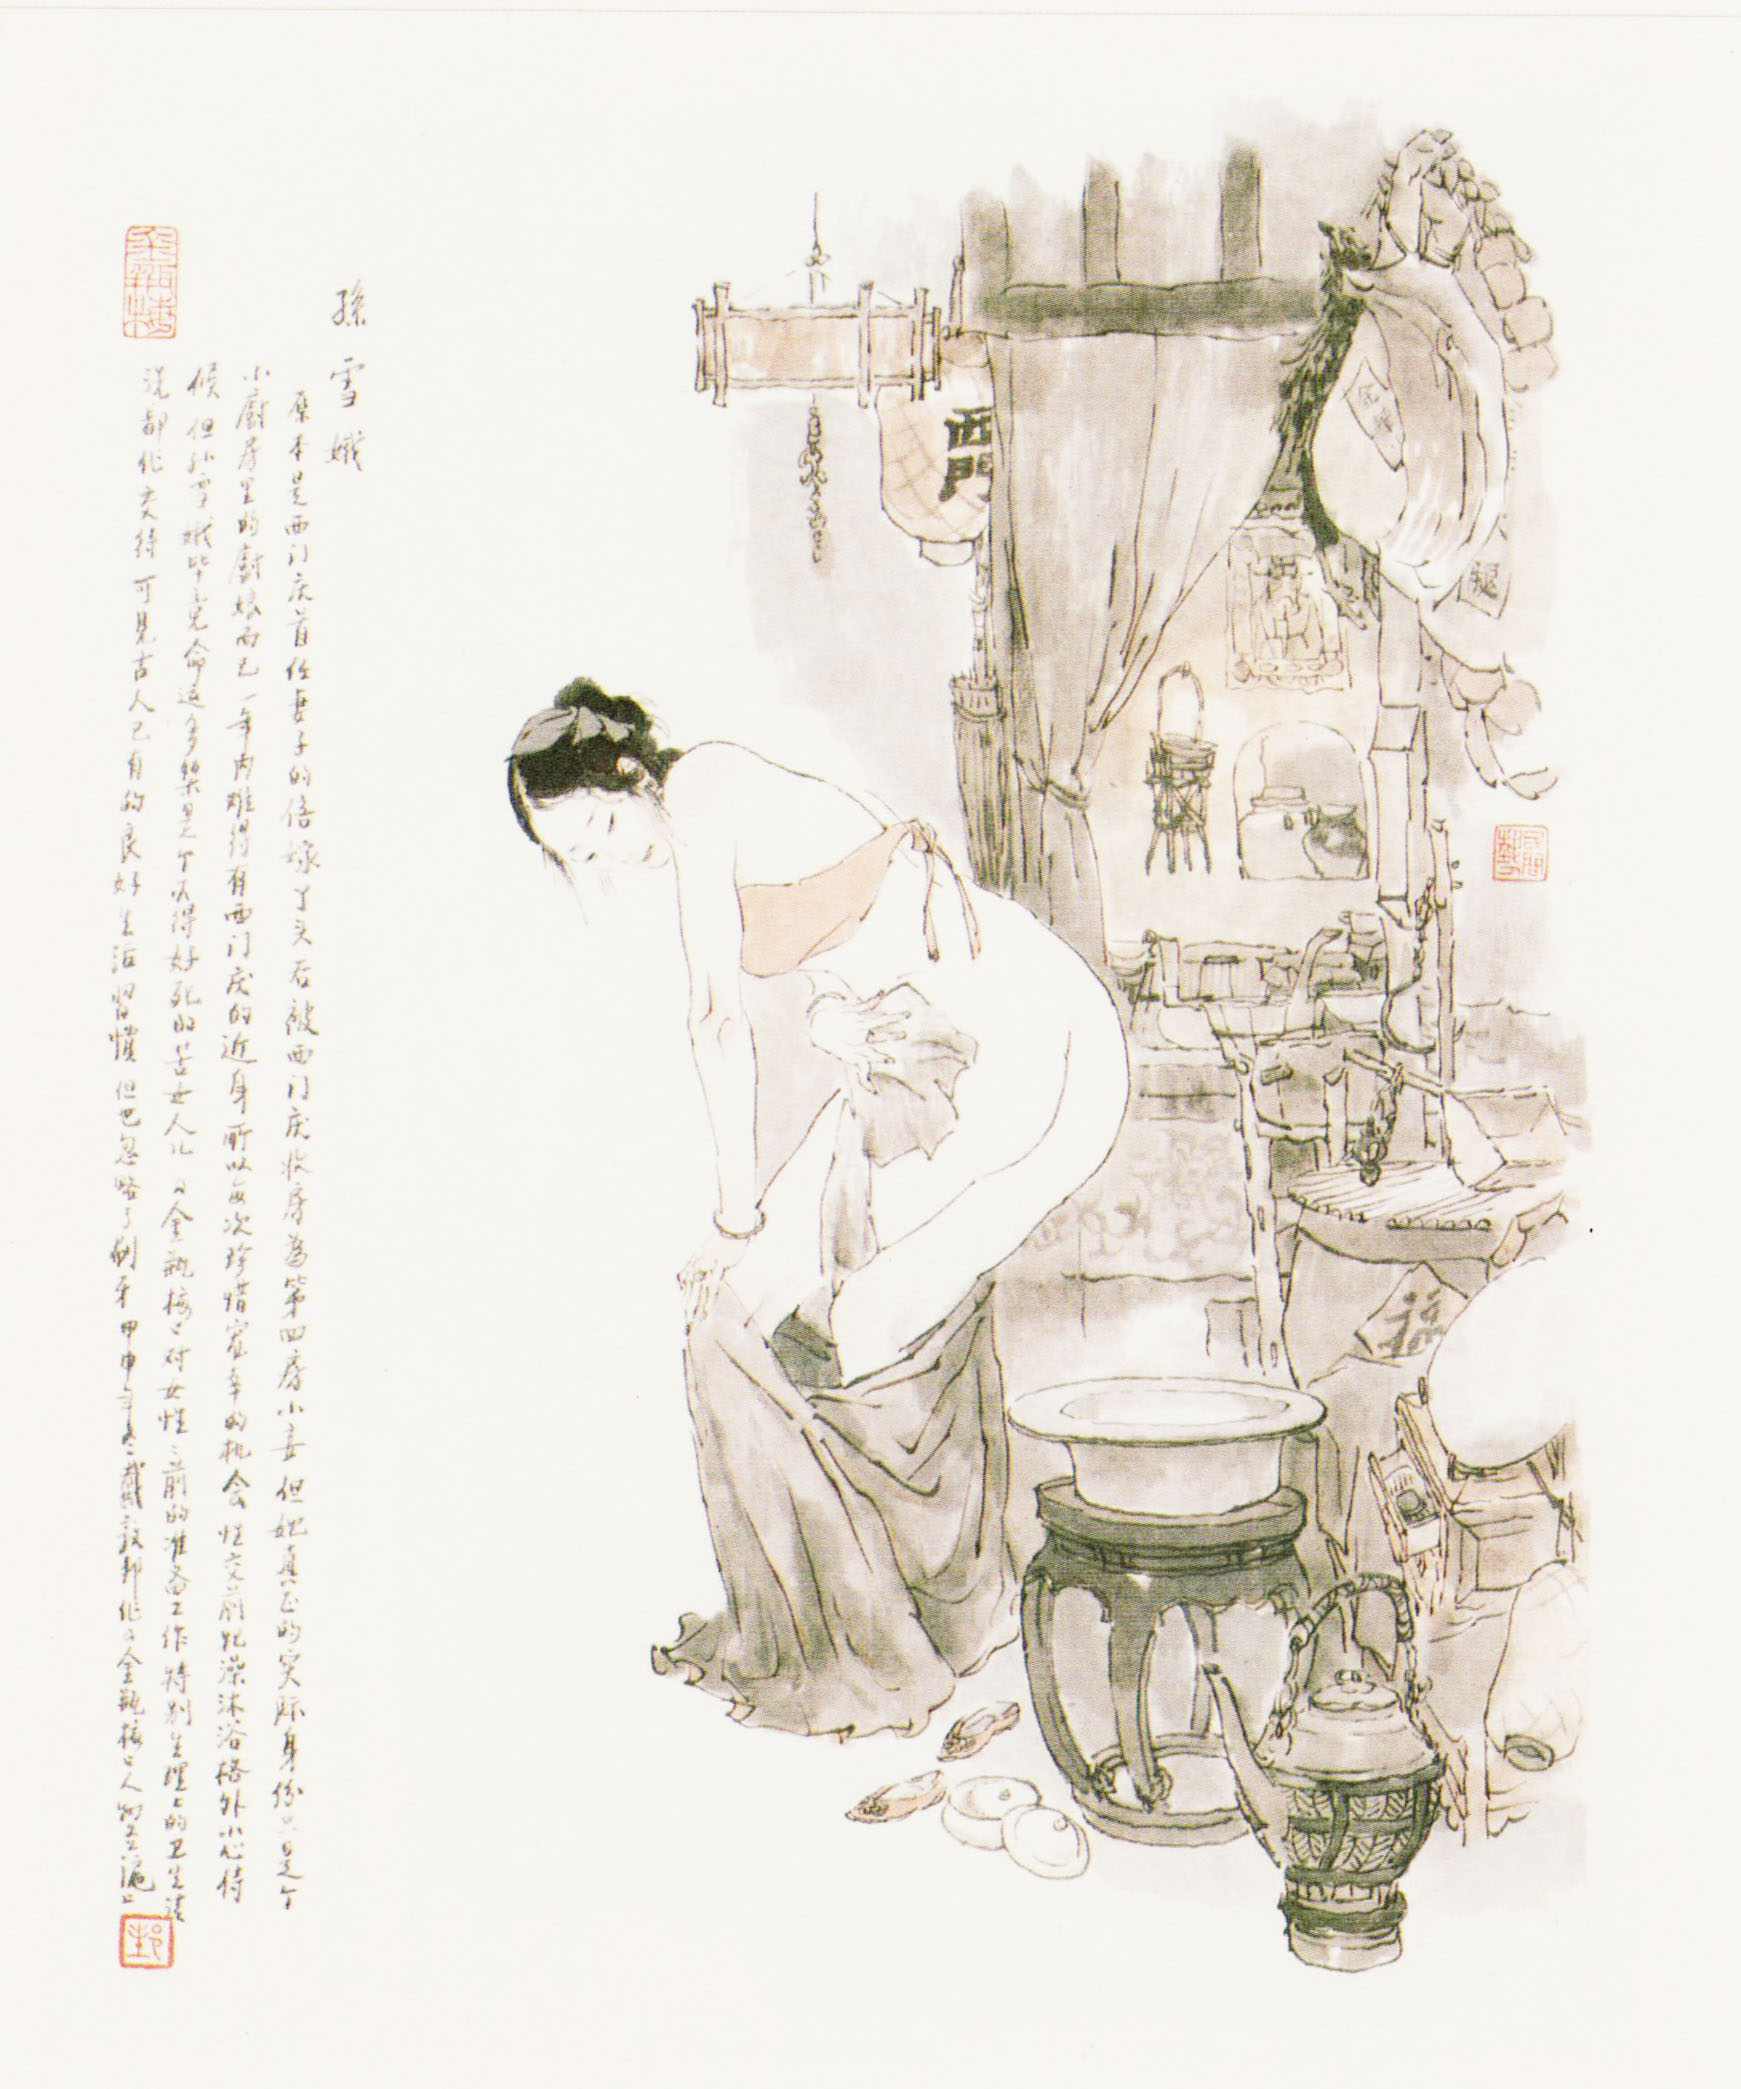 孫雪娥
原本是西门庆首任妻子的倍嫁丫头后被西门庆收房為第四房小妾但她真正的实际身份只是个
小廚房里的廚娘而已一年内难得有西门庆的近身所以每次珍惜宠幸的机会性交前沅澡沐浴格外小心侍
候但孙雪娥毕竟命运多桀是个不得好死的苦女人儿金瓶梅对女性之前的准备工作特别生理上的卫生清
洗都作交待可見古人已有的良好生活習慣但也忽略了刷牙甲申年冬戴敦邦作金瓶梅人物于滬上
西門
福
民間藝人
邦